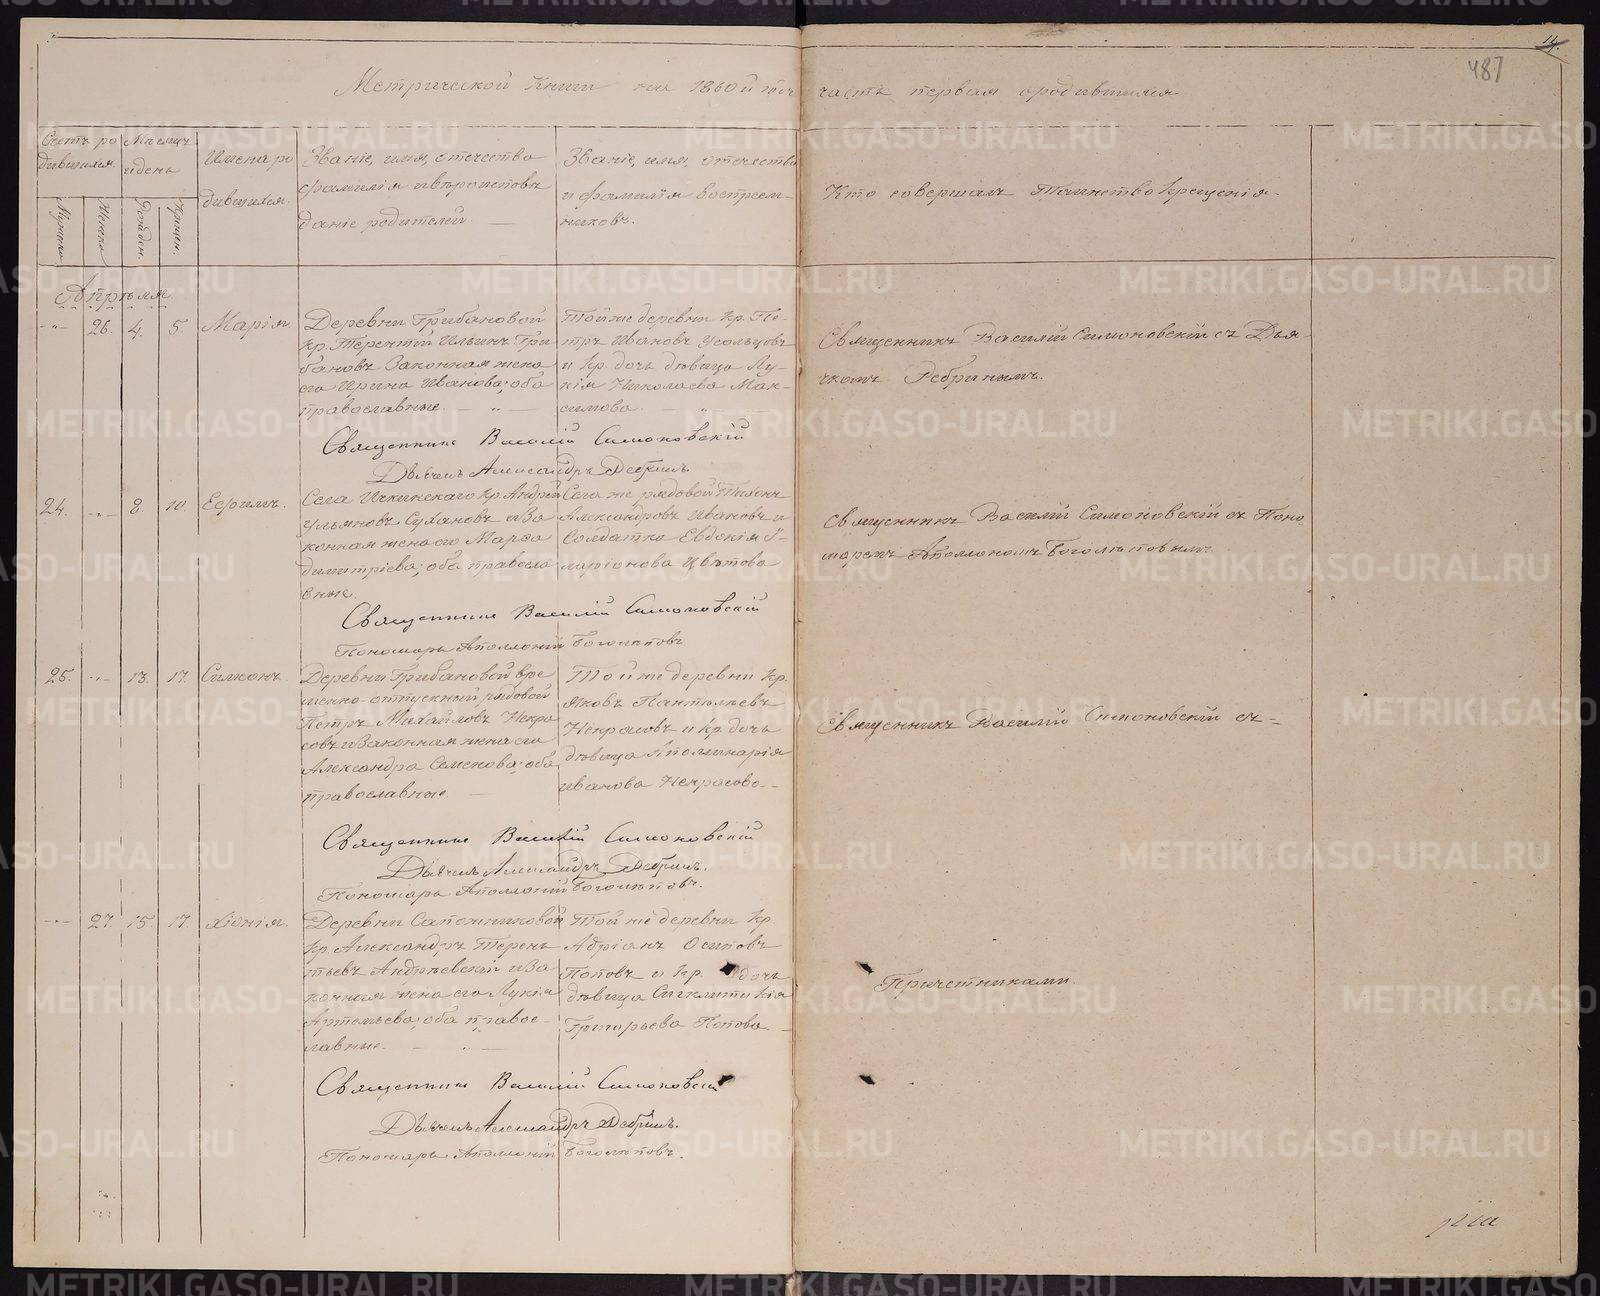 14.
487
Метрической Книги на 1860й годъ часть первая о родившихся
Счетъ ро
дившихся.
Мѣсяцъ
и день
Имена ро
дившихся.
Званіе, имя, отчество
фамилія и вѣроисповѣ
даніе родителей.
Званіе, имя, отчество
и фамилія воспріем-
никовъ.
Кто совершалъ Таинство Крещенія.
Мужеска
Женска
Рожден.
Крещен.
Апрѣля
26. 4. 5. Марія.
Деревни Грибановой
кр. Терентій Ильинъ Гри
бановъ Законная жена
его Ирина Иванова; оба
православные.
Той же деревни кр. Пе-
тръ Ивановъ Усольцовъ
и кр. дочь дѣвица Лу-
кія Николаева Мак-
симова.
Священникъ Василій Симоновскій съ Дья-
чкомъ Ребринымъ.
Священникъ Василій Симоновскій
Дьячекъ Александръ Ребринъ.
24. 8. 10 Ефримъ.
Села Ичкинскаго кр. Андрей
Ульяновъ Сухановъ и За
конная жена его Марфа
Димитріева; оба правосла
вные.
Села же рядовой Тихонъ
Александровъ Ивановъ и
Солдатка Евдокія И-
ларіонова Цвѣтова
Священникъ Василій Симоновскій съ Поно
маремъ Аполлономъ Боголѣповымъ
Священникъ Василій Симоновскій
Пономарь Аполлоній Боголѣповъ
25. 13. 17. Симеонъ.
Деревни Грибановой вре
менно-отпускный рядовой
Петръ Михайловъ Некра
совъ и Законная жена его
Александра Семенова; оба
православные.
Той же деревни кр.
Яковъ Пантилѣевъ
Некрасовъ и кр. дочь
дѣвица Аполлинарія
Иванова Некрасова.
Священникъ Василій Симоновскій съ-
Священникъ Василій Симоновскій
Дьячекъ Александръ Ребринъ.
Пономарь Аполлоній Боголѣповъ.
27. 15. 17. Хіонія.
Деревни Сапожниковой
кр. Александръ Терень
тьевъ Андрѣевскій и За
конная жена его Лукія
Артемьева; оба правос-
лавные.
Той же деревни кр.
Адріанъ Осиповъ
Поповъ и кр. дочь
дѣвица Сигклитикія
Григорьева Попова
Причетниками
Священникъ Василій Симоновскій
Дьячекъ Александръ Ребринъ.
Пономарь Аполлоній Боголѣповъ.
METRIKI.GASO-URAL.RU